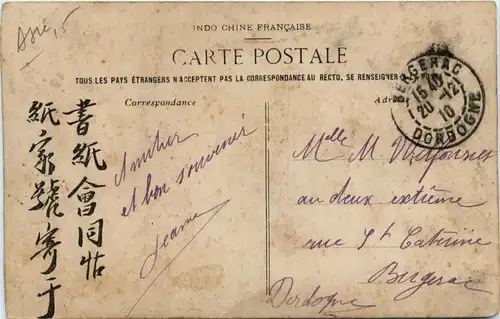 Asie, 15
INDO CHINE FRANÇAISE
CARTE POSTALE
TOUS LES PAYS ÉTRANGERS N'ACCEPTENT PAS LA CORRESPONDANCE AU RECTO. SE RENSEIGNER
Correspondance
Adr
BERGERAC
15
20-12
10
DORDOGNE
書紙會同帖
紙家號寄于
Amitiés
et bon souvenir
Jeanne
Melle M.
au deux extrême
rue St Catherine
Bergerac
Dordogne